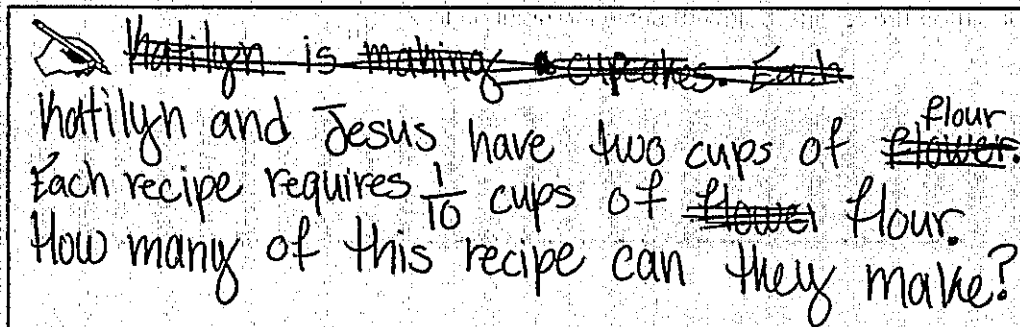 Katilyn is making a cupcakes. Each
Katilyn and Jesus have two cups of flower. flour
Each recipe requires 1/10 cups of flower flour.
How many of this recipe can they make?